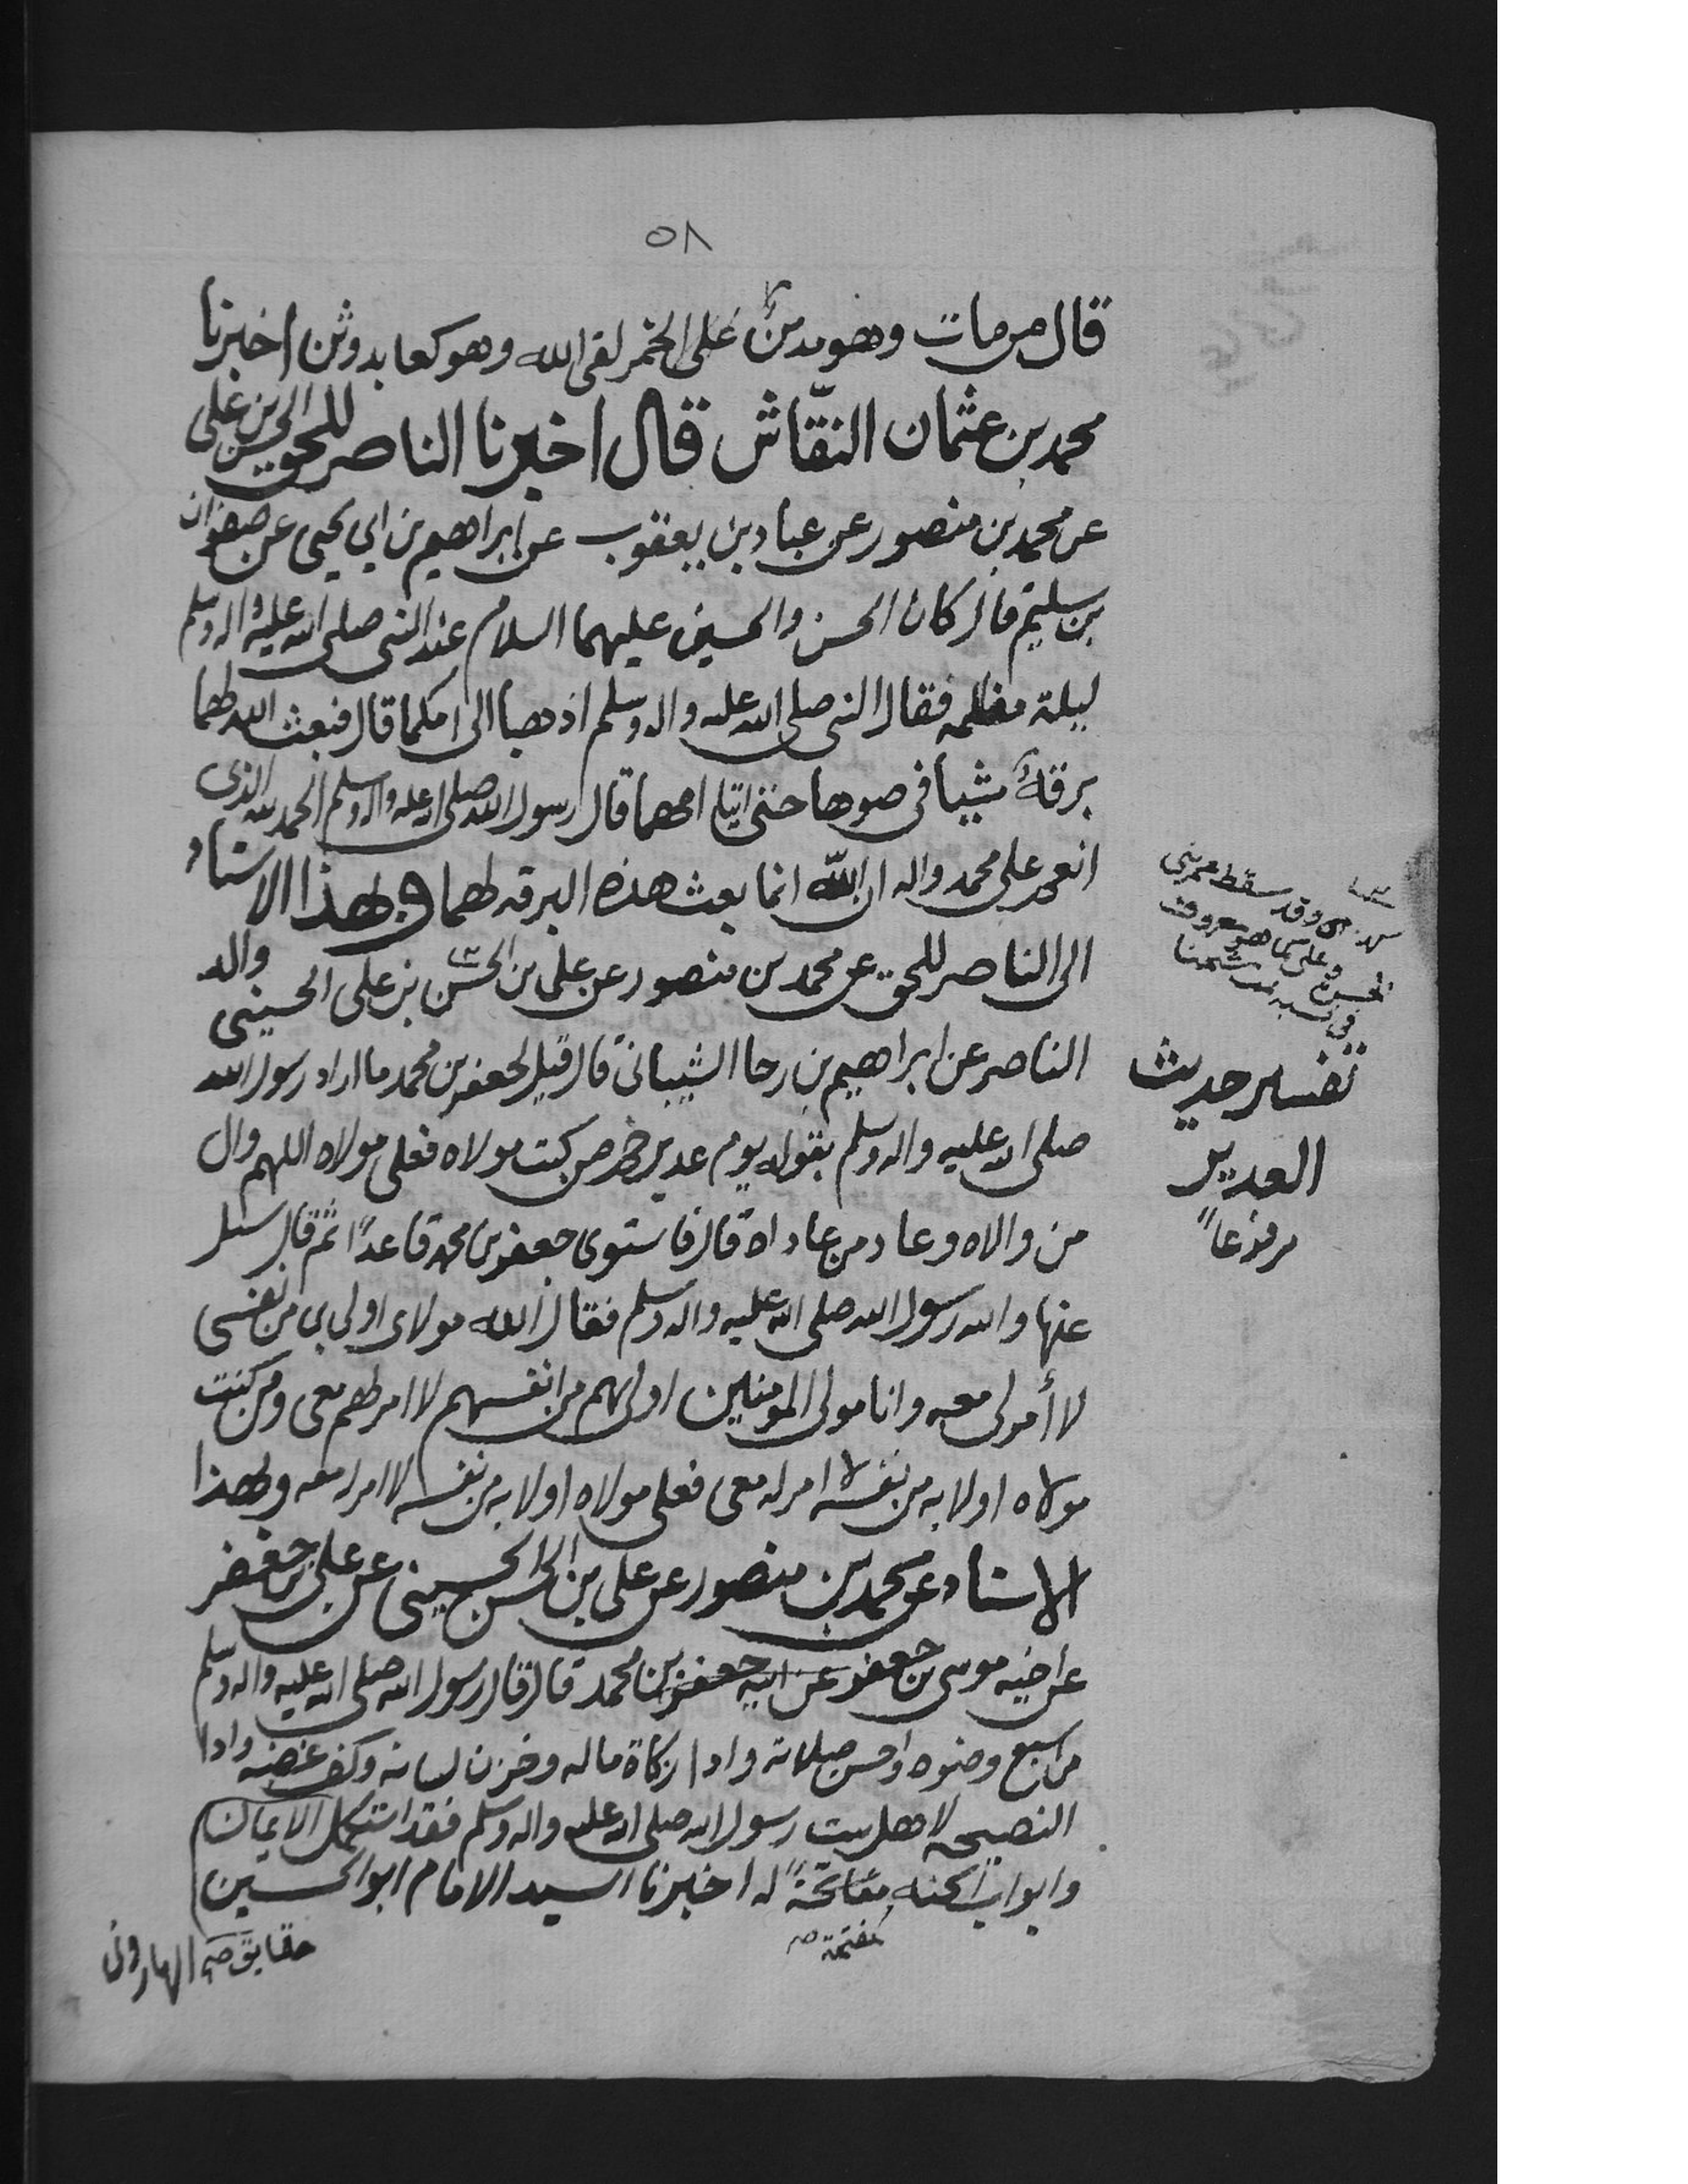 ٥٨
قال من مات وهو مدمن على الخمر لقى الله وهو كعابد وثن اخبرنا
محمد بن عثمان النقّاش قال اخبرنا الناصر للحق الحسن بن على
عن محمد بن منصور عن عباد بن يعقوب عن ابراهيم بن ابي يحيى عن صفوان
بن سليم قال كان الحسن والحسين عليهما السلام عند النبى صلى الله عليه واله وسلم
ليلة مظلمه فقال النبى صلى الله عليه واله وسلم اذهبا الى امكما قال فبعث الله لهما
برقةً مشيا فى ضوها حتى اتيا امهما قال رسول الله صلى الله عليه واله وسلم الحمد لله الذى
انعم على محمد واله ان اللّه انما بعث هذه البرقه لهما وبهذا الاسناد
الى الناصر للحق عن محمد بن منصور عن على بن الحسن بن على الحسينى والد
الناصر عن ابراهيم بن رجا الشيبانى قال قيل لجعفر بن محمد ما اراد رسول الله
صلى الله عليه واله وسلم بقوله يوم غدير خم من كنت مولاه فعلى مولاه اللهم وال
من والاه وعاد من عاداه قال فاستوى جعفر بن محمد قاعدًا ثم قال سئل
عنها والله رسول الله صلى الله عليه واله وسلم فقال الله مولاى اولى بى من نفسى
لا أمر لى معه وانا مولى المومنين اولى بهم من انفسهم لا امر لهم معى ومن كنت
مولاه اولا به من نفسه لا امر له معى فعلى مولاه اولا به من نفسه لا امر له معه وبهذا
الاسناد عن محمد بن منصور عن على بن الحسن الحسينى عن على بن جعفر
عن اخيه موسى بن جعفر عن ابيه جعفر بن محمد قال قال رسول الله صلى الله عليه واله وسلم
من اسبع وضوه واحسن صلاته وادا زكاة ماله وخزن لسانه وكف غضبه وادا
النصيحه لاهل بيت رسول الله صلى الله عليه واله وسلم فقد استكمل الايمان
وابواب الجنه مفاتحةً له اخبرنا السيد الامام ابو الحسين
مفتحة
الهارونى
وقد سقط
وعلى كما هو معروف
تفسير حديث
الغدير
مرفوعاً